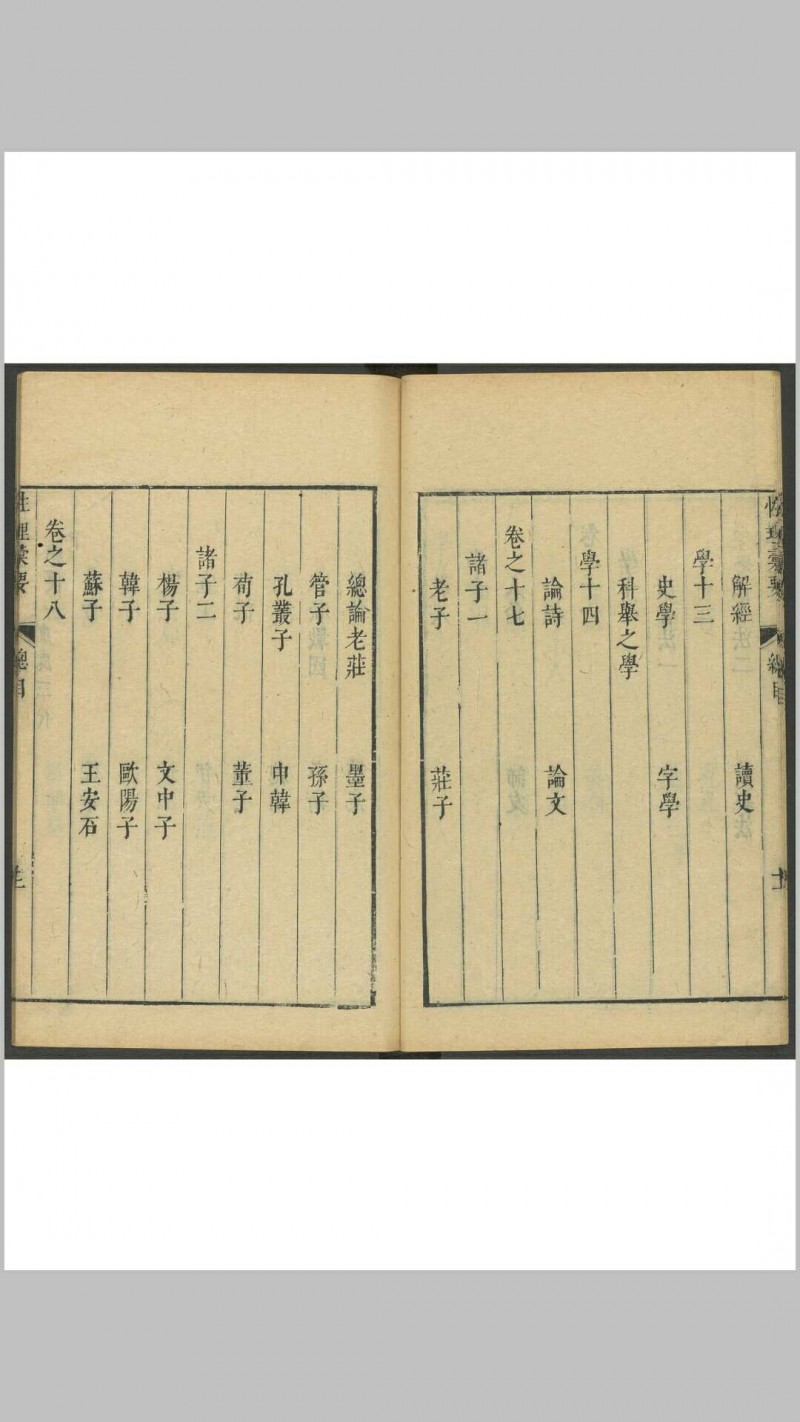 解經 讀史
學十三
史學 字學
科舉之學
學十四
論詩 論文
卷之十七
諸子一
老子 莊子
總論老莊 墨子
管子 孫子
孔叢子 申韓
荀子 董子
諸子二
楊子 文中子
韓子 歐陽子
蘇子 王安石
卷之十八
性理彙要 總目